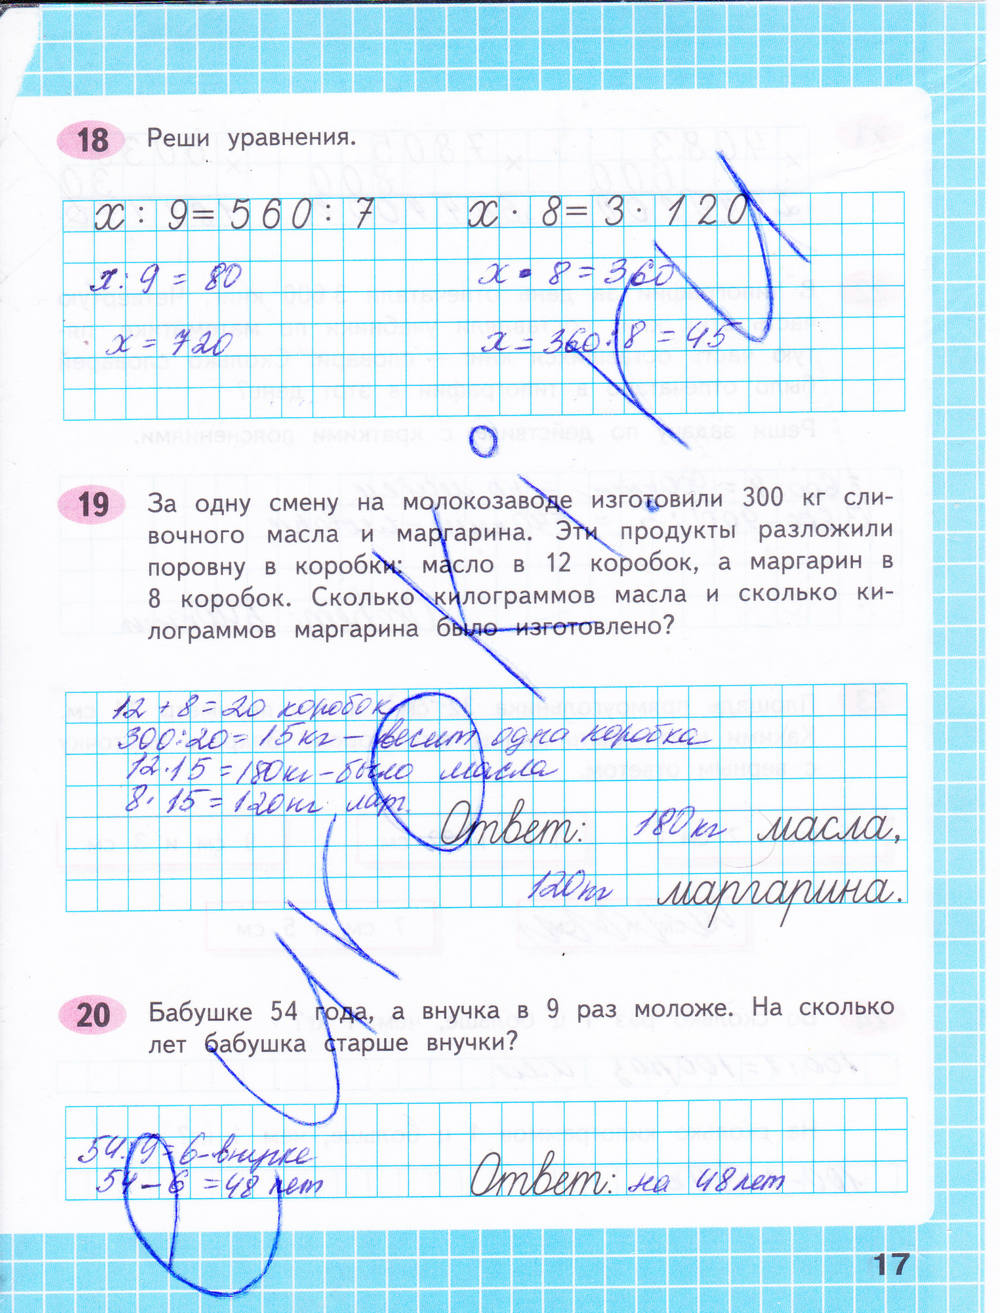 18 Реши уравнения.
x : 9 = 560 : 7 x · 8 = 3 · 120
x : 9 = 80 x · 8 = 360
x = 720 x = 360 : 8 = 45
19 За одну смену на молокозаводе изготовили 300 кг сли-
вочного масла и маргарина. Эти продукты разложили
поровну в коробки: масло в 12 коробок, а маргарин в
8 коробок. Сколько килограммов масла и сколько ки-
лограммов маргарина было изготовлено?
12 + 8 = 20 коробок
300 : 20 = 15 кг – весит одна коробка
12 · 15 = 180 кг – было масла
8 · 15 = 120 кг марг.
Ответ: 180 кг масла,
120 кг маргарина.
20 Бабушке 54 года, а внучка в 9 раз моложе. На сколько
лет бабушка старше внучки?
54 : 9 = 6 – внучке
54 – 6 = 48 лет Ответ: на 48 лет
17